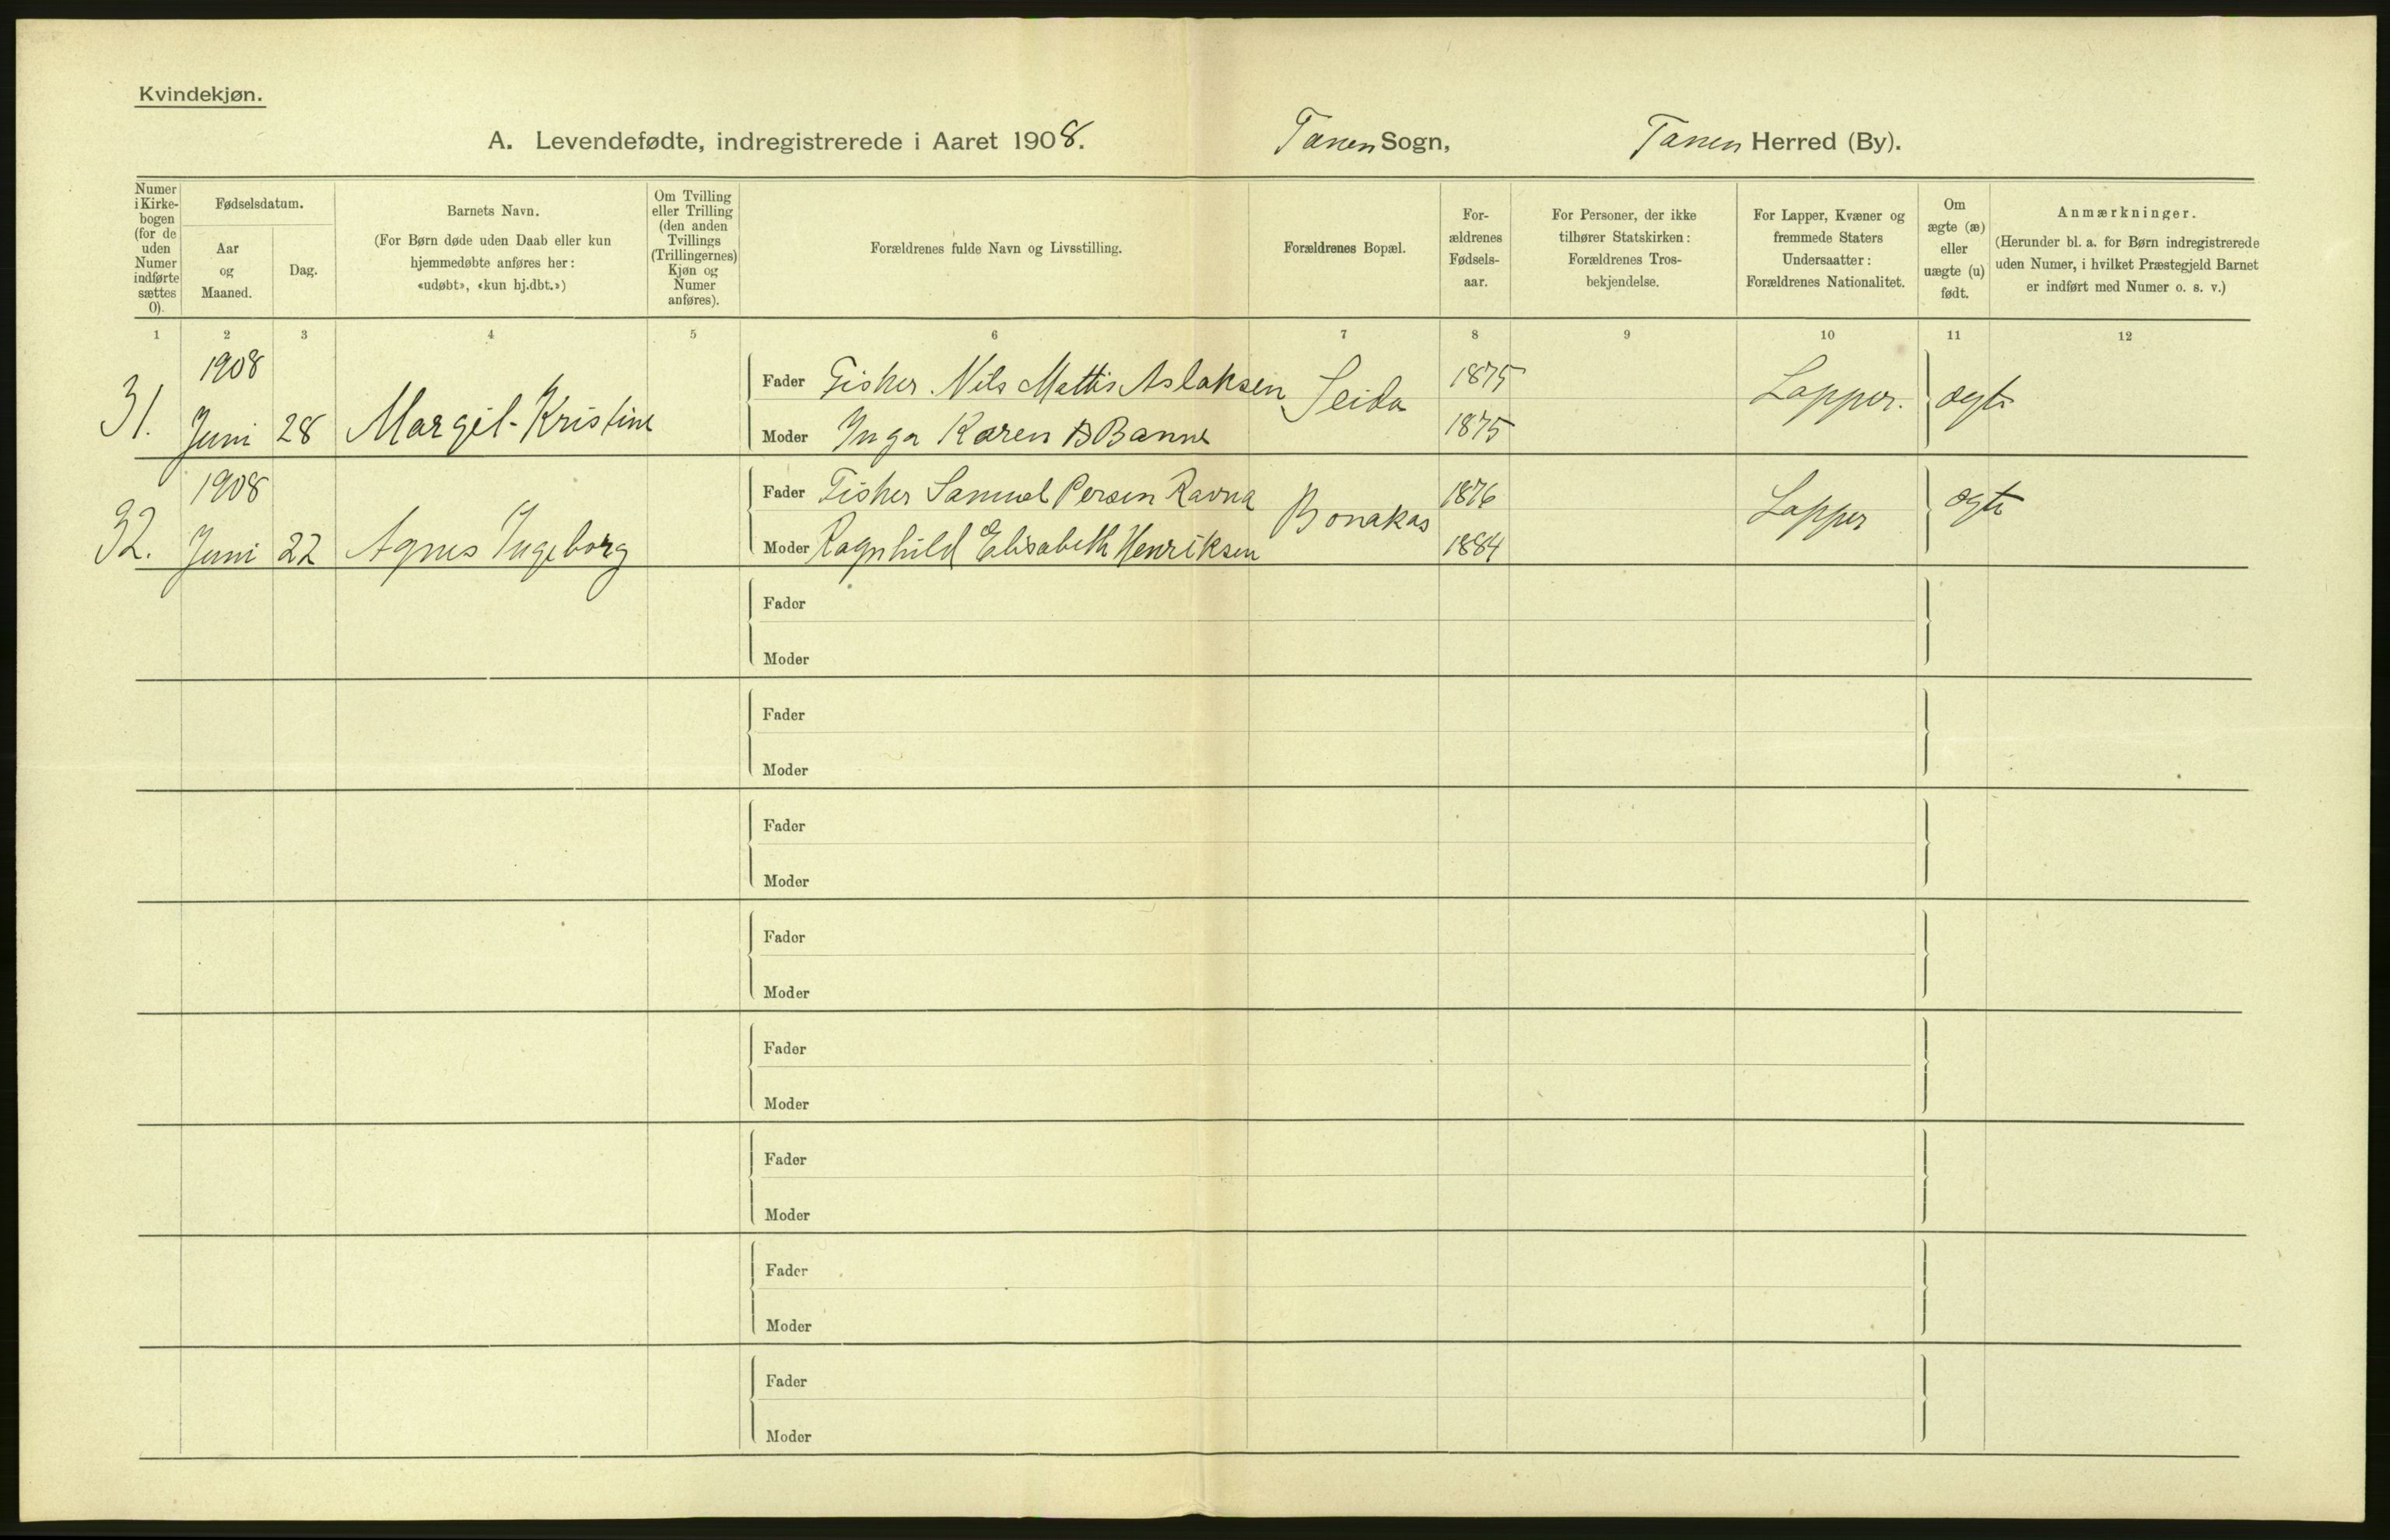 Kvindekjøn.
A. Levendefødte, indregistrerede i Aaret 1908. Tanen Sogn, Tanen Herred (By).
Numer i Kirke-bogen (for de uden Numer indførte sættes 0).
Fødselsdatum.
Aar og Maaned.
Dag.
Barnets Navn.
(For Børn døde uden Daab eller kun
hjemmedøbte anføres her:
«udøbt», «kun hj.dbt.»)
Om Tvilling
eller Trilling
(den anden
Tvillings
(Trillingernes)
Kjøn og
Numer
anføres).
Forældrenes fulde Navn og Livsstilling.
Forældrenes Bopæl.
For-
ældrenes
Fødsels-
aar.
For Personer, der ikke
tilhører Statskirken:
Forældrenes Tros-
bekjendelse.
For Lapper, Kvæner og
fremmede Staters
Undersaatter:
Forældrenes Nationalitet.
Om
ægte (æ)
eller
uægte (u)
født.
Anmærkninger.
(Herunder bl. a. for Børn indregistrerede
uden Numer, i hvilket Præstegjeld Barnet
er indført med Numer o. s. v.)
1 2 3 4 5 6 7 8 9 10 11 12
1908
31. Juni 28 Margit-Kristine
Fader Fisker Nils Mattis Aslaksen Seida 1875 Lapper. ægte
Moder Inga Karen B Banne 1875
1908
32. Juni 22 Agnes Ingeborg
Fader Fisker Samuel Persen Ravna Bonakas 1876 Lapper ægte
Moder Ragnhild Elisabeth Henriksen 1884
Fader
Moder
Fader
Moder
Fader
Moder
Fader
Moder
Fader
Moder
Fader
Moder
Fader
Moder
Fader
Moder